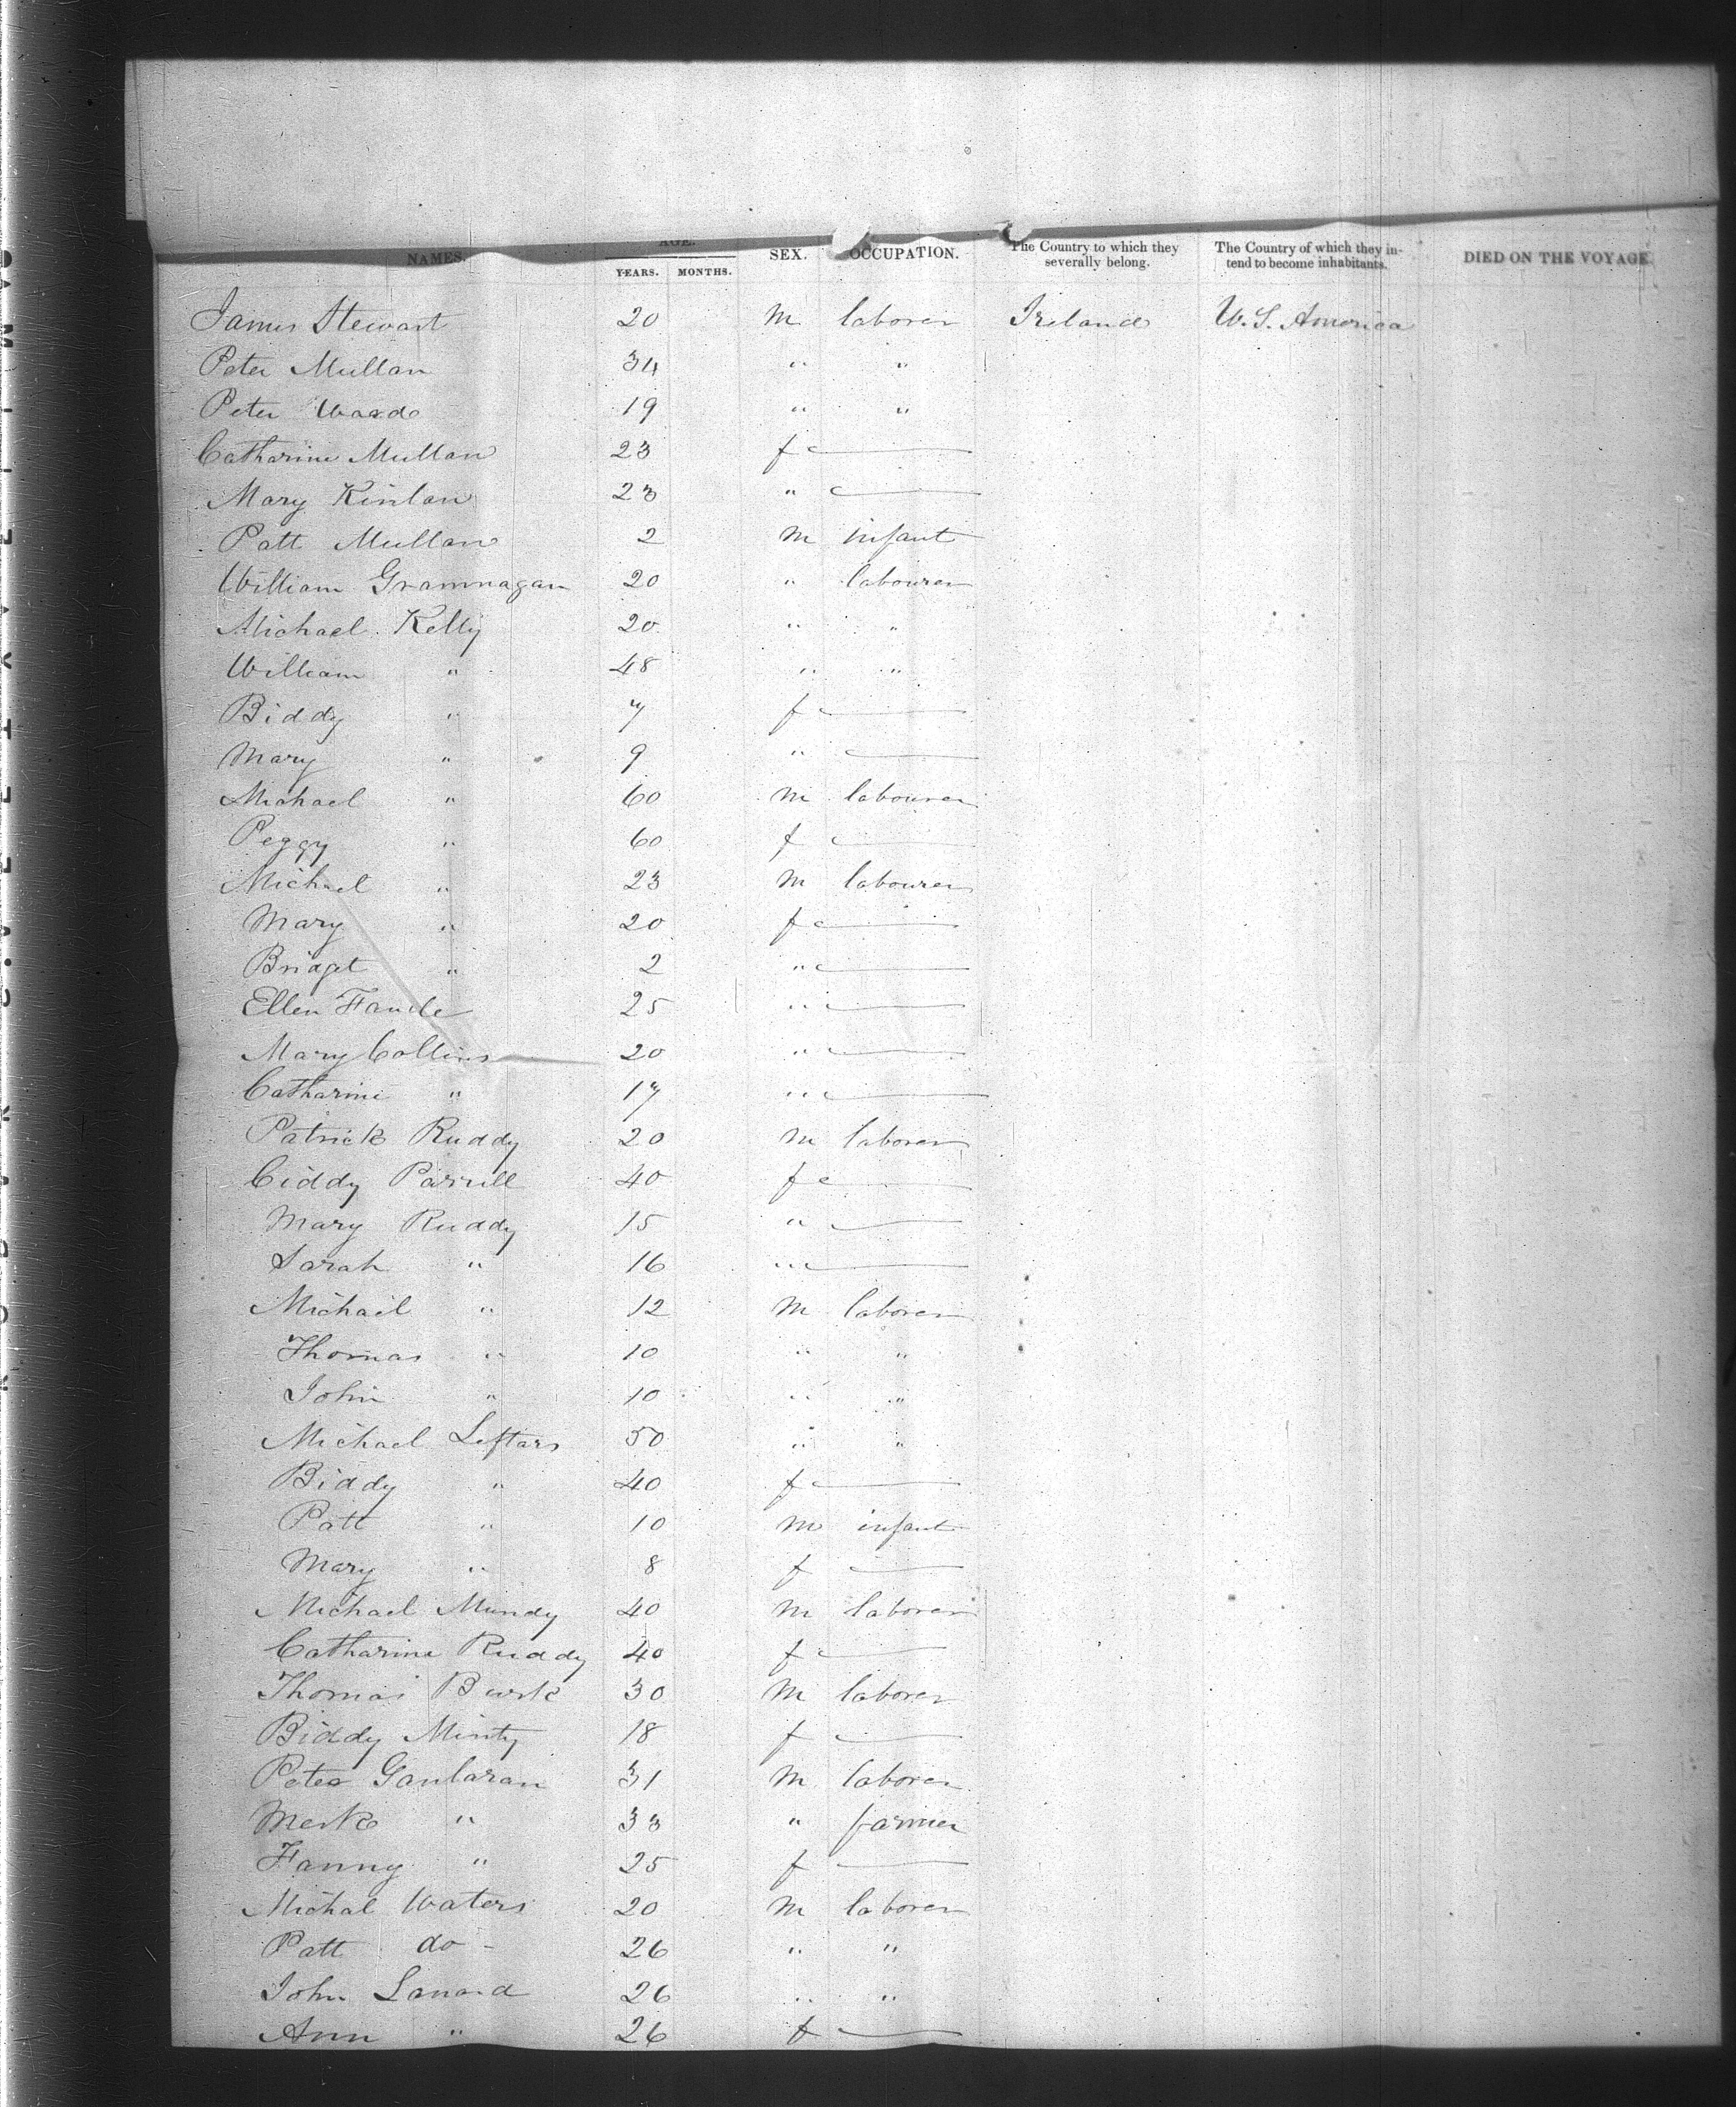 NAMES. AGE. SEX. OCCUPATION. The Country to which they severally belong. The Country of which they intend to become inhabitants. DIED ON THE VOYAGE
YEARS. MONTHS.
James Stewart 20 m laborer Ireland U.S. America
Peter Mullan 34 " "
Peter Ward 19 " "
Catharine Mullan 23 f —
Mary Kinlan 23 " —
Patt Mullan 2 m infant
William Gramnagan 20 " labourer
Michael Kelly 20 " "
William " 48 " "
Biddy " 7 f —
Mary " 9 " —
Michael " 60 m labourer
Peggy " 60 f —
Michael " 23 m labourer
Mary " 20 f —
Bridget " 2 " —
Ellen 25 " —
Mary Collins 20 " —
Catharine " 17 " —
Patrick Ruddy 20 m laborer
Ciddy Parrill 40 f —
Mary Ruddy 15 " —
Sarah " 16 " —
Michael " 12 m laborer
Thomas " 10 " "
John " 10 " "
Michael Leftars 50 " "
Biddy " 40 f —
Patt " 10 m infant
Mary " 8 f —
Michael Mundy 40 m laborer
Catharine Ruddy 40 f —
Thomas Burk 30 m laborer
Biddy Minty 18 f —
Peter Ganlaran 31 m laborer
Merk " 33 " farmer
Fanny " 25 f —
Michal Waters 20 m laborer
Patt do - 26 " "
John Lanard 26 " "
Ann " 26 f —